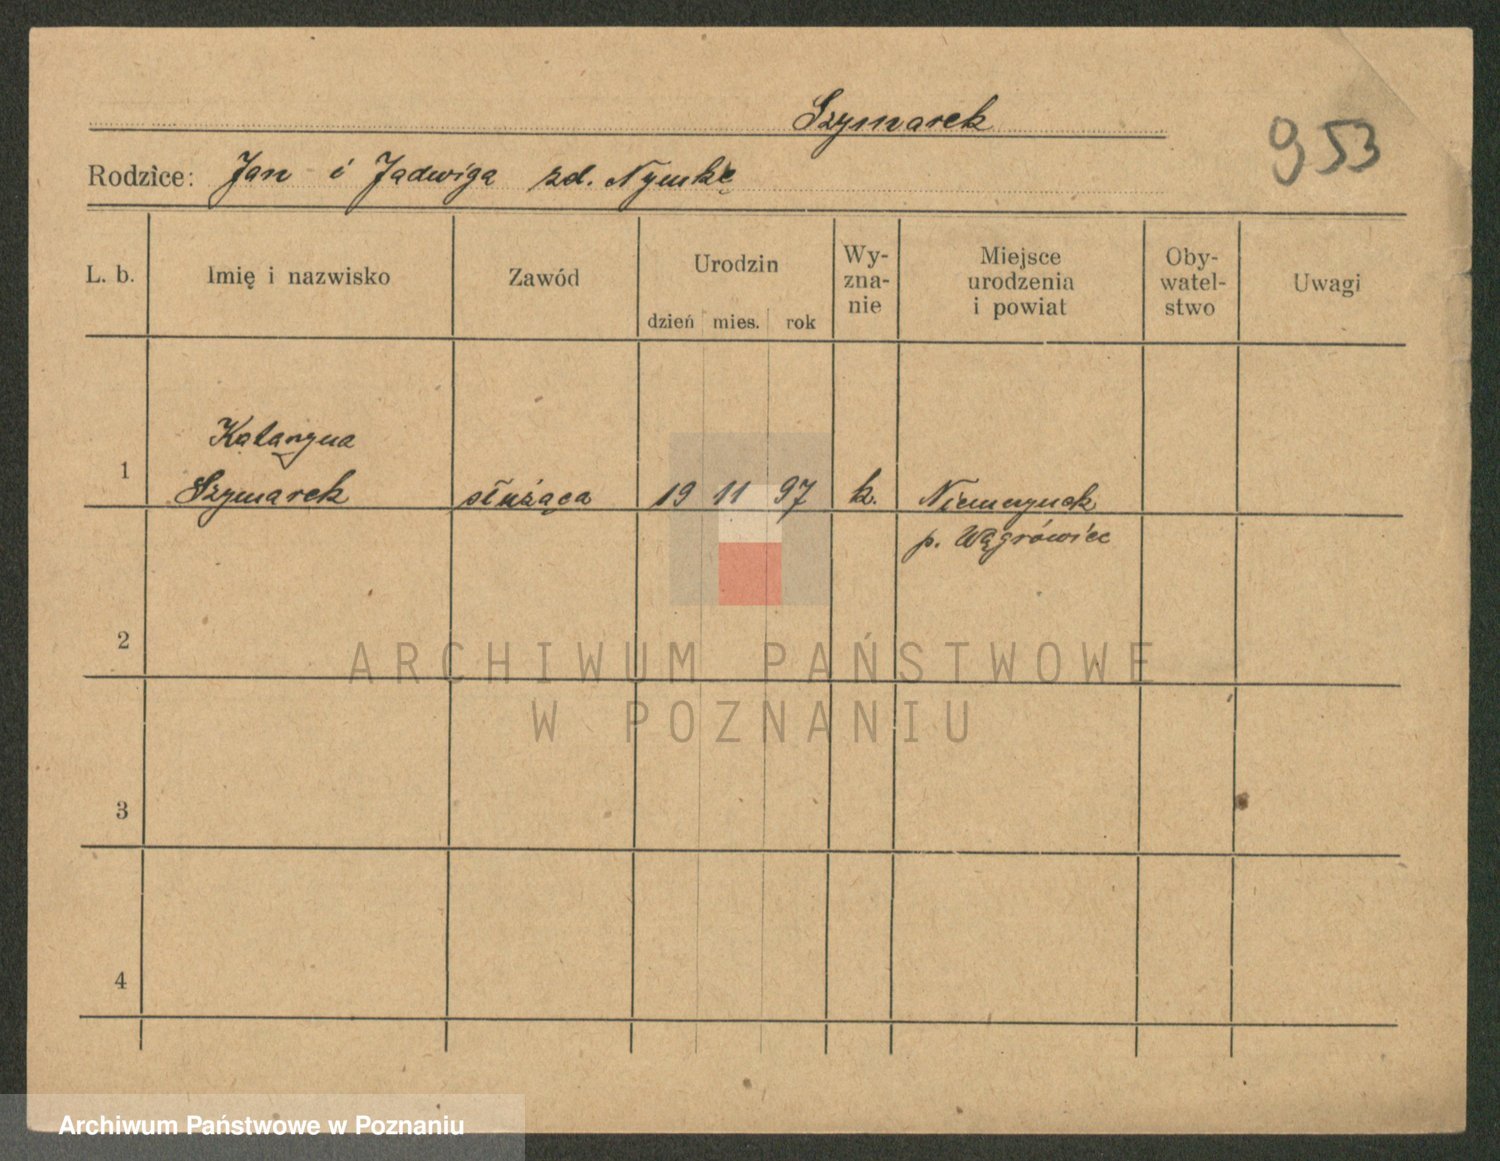 Szymarek
953
Rodzice: Jan i Jadwiga zd.
L. b. Imię i nazwisko Zawód Urodzin dzień mies. rok Wy-zna-nie Miejsce urodzenia i powiat Oby-watel-stwo Uwagi
Katarzyna
1 Szymarek służąca 19 11 97 k. Niemczynek
p. Wągrówiec
2
ARCHIWUM PAŃSTWOWE
W POZNANIU
3
4
Archiwum Państwowe w Poznaniu